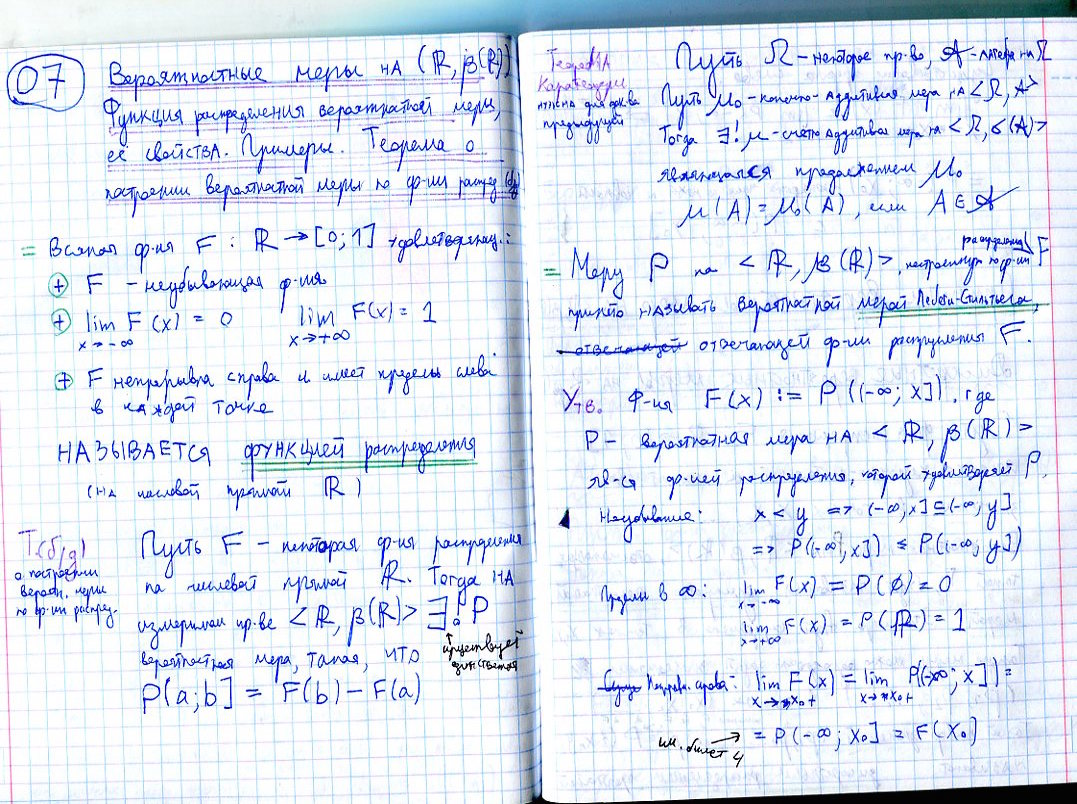 07
Вероятностные меры на (ℝ, β(ℝ))
Функция распределения вероятностной меры,
её свойства. Примеры. Теорема о
построении вероятностной меры по ф-ии распред (б/д)
= Всякая ф-ия F : ℝ → [0; 1] удовлетворяющ.:
+ F - неубывающая ф-ия
+ lim F(x) = 0 lim F(x) = 1
x→-∞ x→+∞
+ F непрерывна справа и имеет пределы слева
в каждой точке
НАЗЫВАЕТСЯ функцией распределения
(на числовой прямой ℝ)
Т(б/д)
о построении
вероятн. меры
по ф-ии распред.
Пусть F - некоторая ф-ия распределения
на числовой прямой ℝ. Тогда на
измеримом пр-ве <ℝ, β(ℝ)> ∃! P
вероятностная мера, такая, что
существует
единственная
P(a; b] = F(b) - F(a)
Теорема
Каратеодори
нужна для док-ва
предыдущей
Пусть Ω - некоторое пр-во, 𝒜 - алгебра на Ω
Пусть μ₀ - конечно-аддитивная мера на <Ω, A>
Тогда ∃! μ - счётно аддитивная мера на <Ω, σ(A)>
являющаяся продолжением μ₀
μ(A) = μ₀(A), если A ∈ 𝒜
= Меру P на <ℝ, β(ℝ)>, построенную по ф-ии распределения F
принято называть вероятностной мерой Лебега-Стильтьеса,
отвечающей отвечающей ф-ии распределения F.
Утв. Ф-ия F(x) := P((-∞; x]), где
P - вероятностная мера на <ℝ, β(ℝ)>
явл-ся ф-ией распределения, которой удовлетворяет P.
Неубывание: x < y => (-∞; x] ⊆ (-∞; y]
=> P(-∞; x]) ≤ P(-∞; y])
Пределы в ∞: lim F(x) = P(∅) = 0
x→-∞
lim F(x) = P(ℝ) = 1
x→+∞
Непрерв. справа: lim F(x) = lim P((-∞; x]) =
x→x₀+ x→x₀+
см. билет 4 → = P(-∞; x₀] = F(x₀)